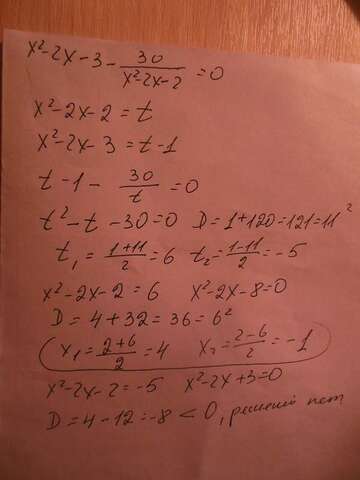 x²-2x-3-30/(x²-2x-2)=0
x²-2x-2=t
x²-2x-3=t-1
t-1-30/t=0
t²-t-30=0 D=1+120=121=11²
t₁=(1+11)/2=6 t₂=(1-11)/2=-5
x²-2x-2=6 x²-2x-8=0
D=4+32=36=6²
x₁=(2+6)/2=4 x₂=(2-6)/2=-1
x²-2x-2=-5 x²-2x+3=0
D=4-12=-8<0, решений нет